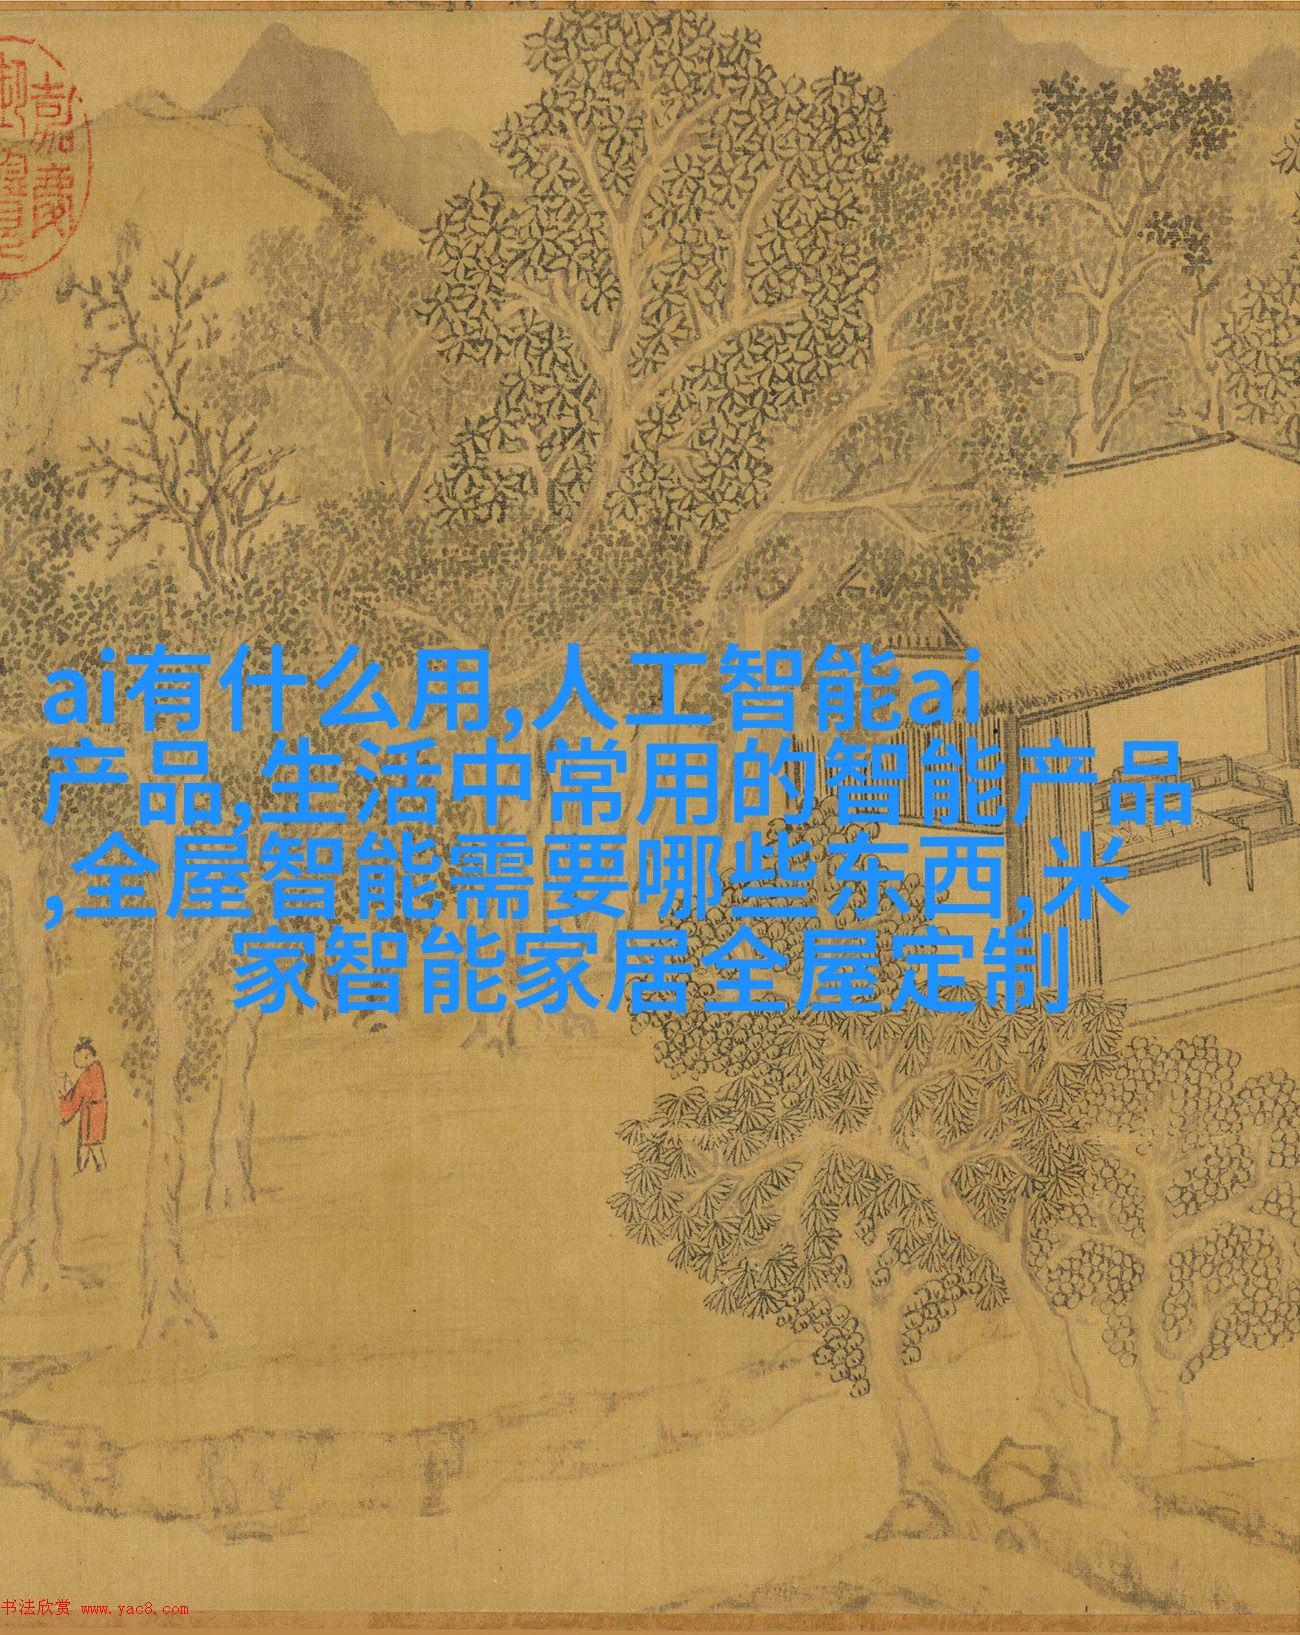 ai有什么用,人工智能ai
产品,生活中常用的智能产品
,全屋智能需要哪些东西,米
家智能家居全屋定制
嘉慶
书法欣赏 www.yac8.com